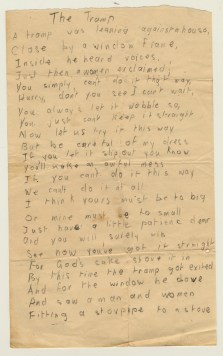 The Tramp
A tramp was leaning against a house,
Close by a window flame,
Inside he heard voices,
Just then a women exclaimed;
You simply cant do it that way
Harry, dont you see I cant wait,
You always let it wobble so,
You just cant keep it straight
Now let us try in this way
But be careful of my dress
If you let it slip out you know
you'll make an awful mess
If you cant do it this way
We cant do it at all
I think yours must be to big
Or mine must be to small
Just have a little patience dear
And you will surely win
See now you've got it straight
For Gods sake shove it in
By this time the tramp got exited
And for the window he dove
And saw a man and women
Fitting a stovpipe to a stove